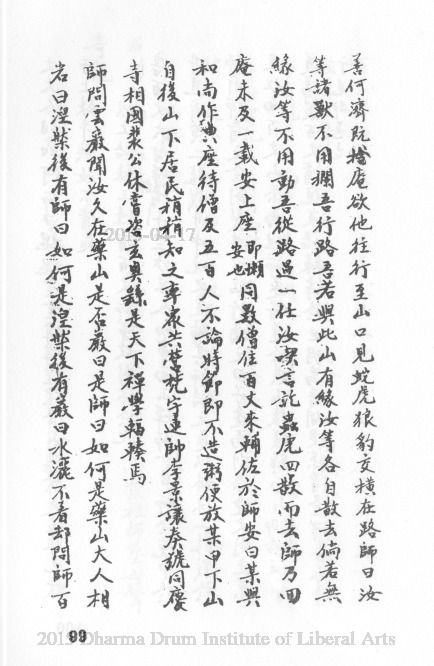 善何濟阮捨庵欲他往行至山口見蛇虎狼豹交橫在路師曰汝
等諸獸不用攔吾行路吾若與此山有緣汝等各自散去倘若無
緣汝等不用動吾從路過一任汝喫言訖蟲虎四散而去師乃回
庵未及一載安上座即懶安也同數僧從百丈來輔佐於師安曰某與
和尚作典座待僧及五百人不論時節即不造粥便放某甲下山
自後山下居民稍稍知之率衆共營梵宇連帥李景讓奏號同慶
寺相國裴公休嘗咨玄奧繇是天下禪學輻輳焉
師問雲巖聞汝久在藥山是否巖曰是師曰如何是藥山大人相
岩曰涅槃後有師曰如何是涅槃後有巖曰水灑不着却問師百
2013-04-17
99
2013 Dharma Drum Institute of Liberal Arts